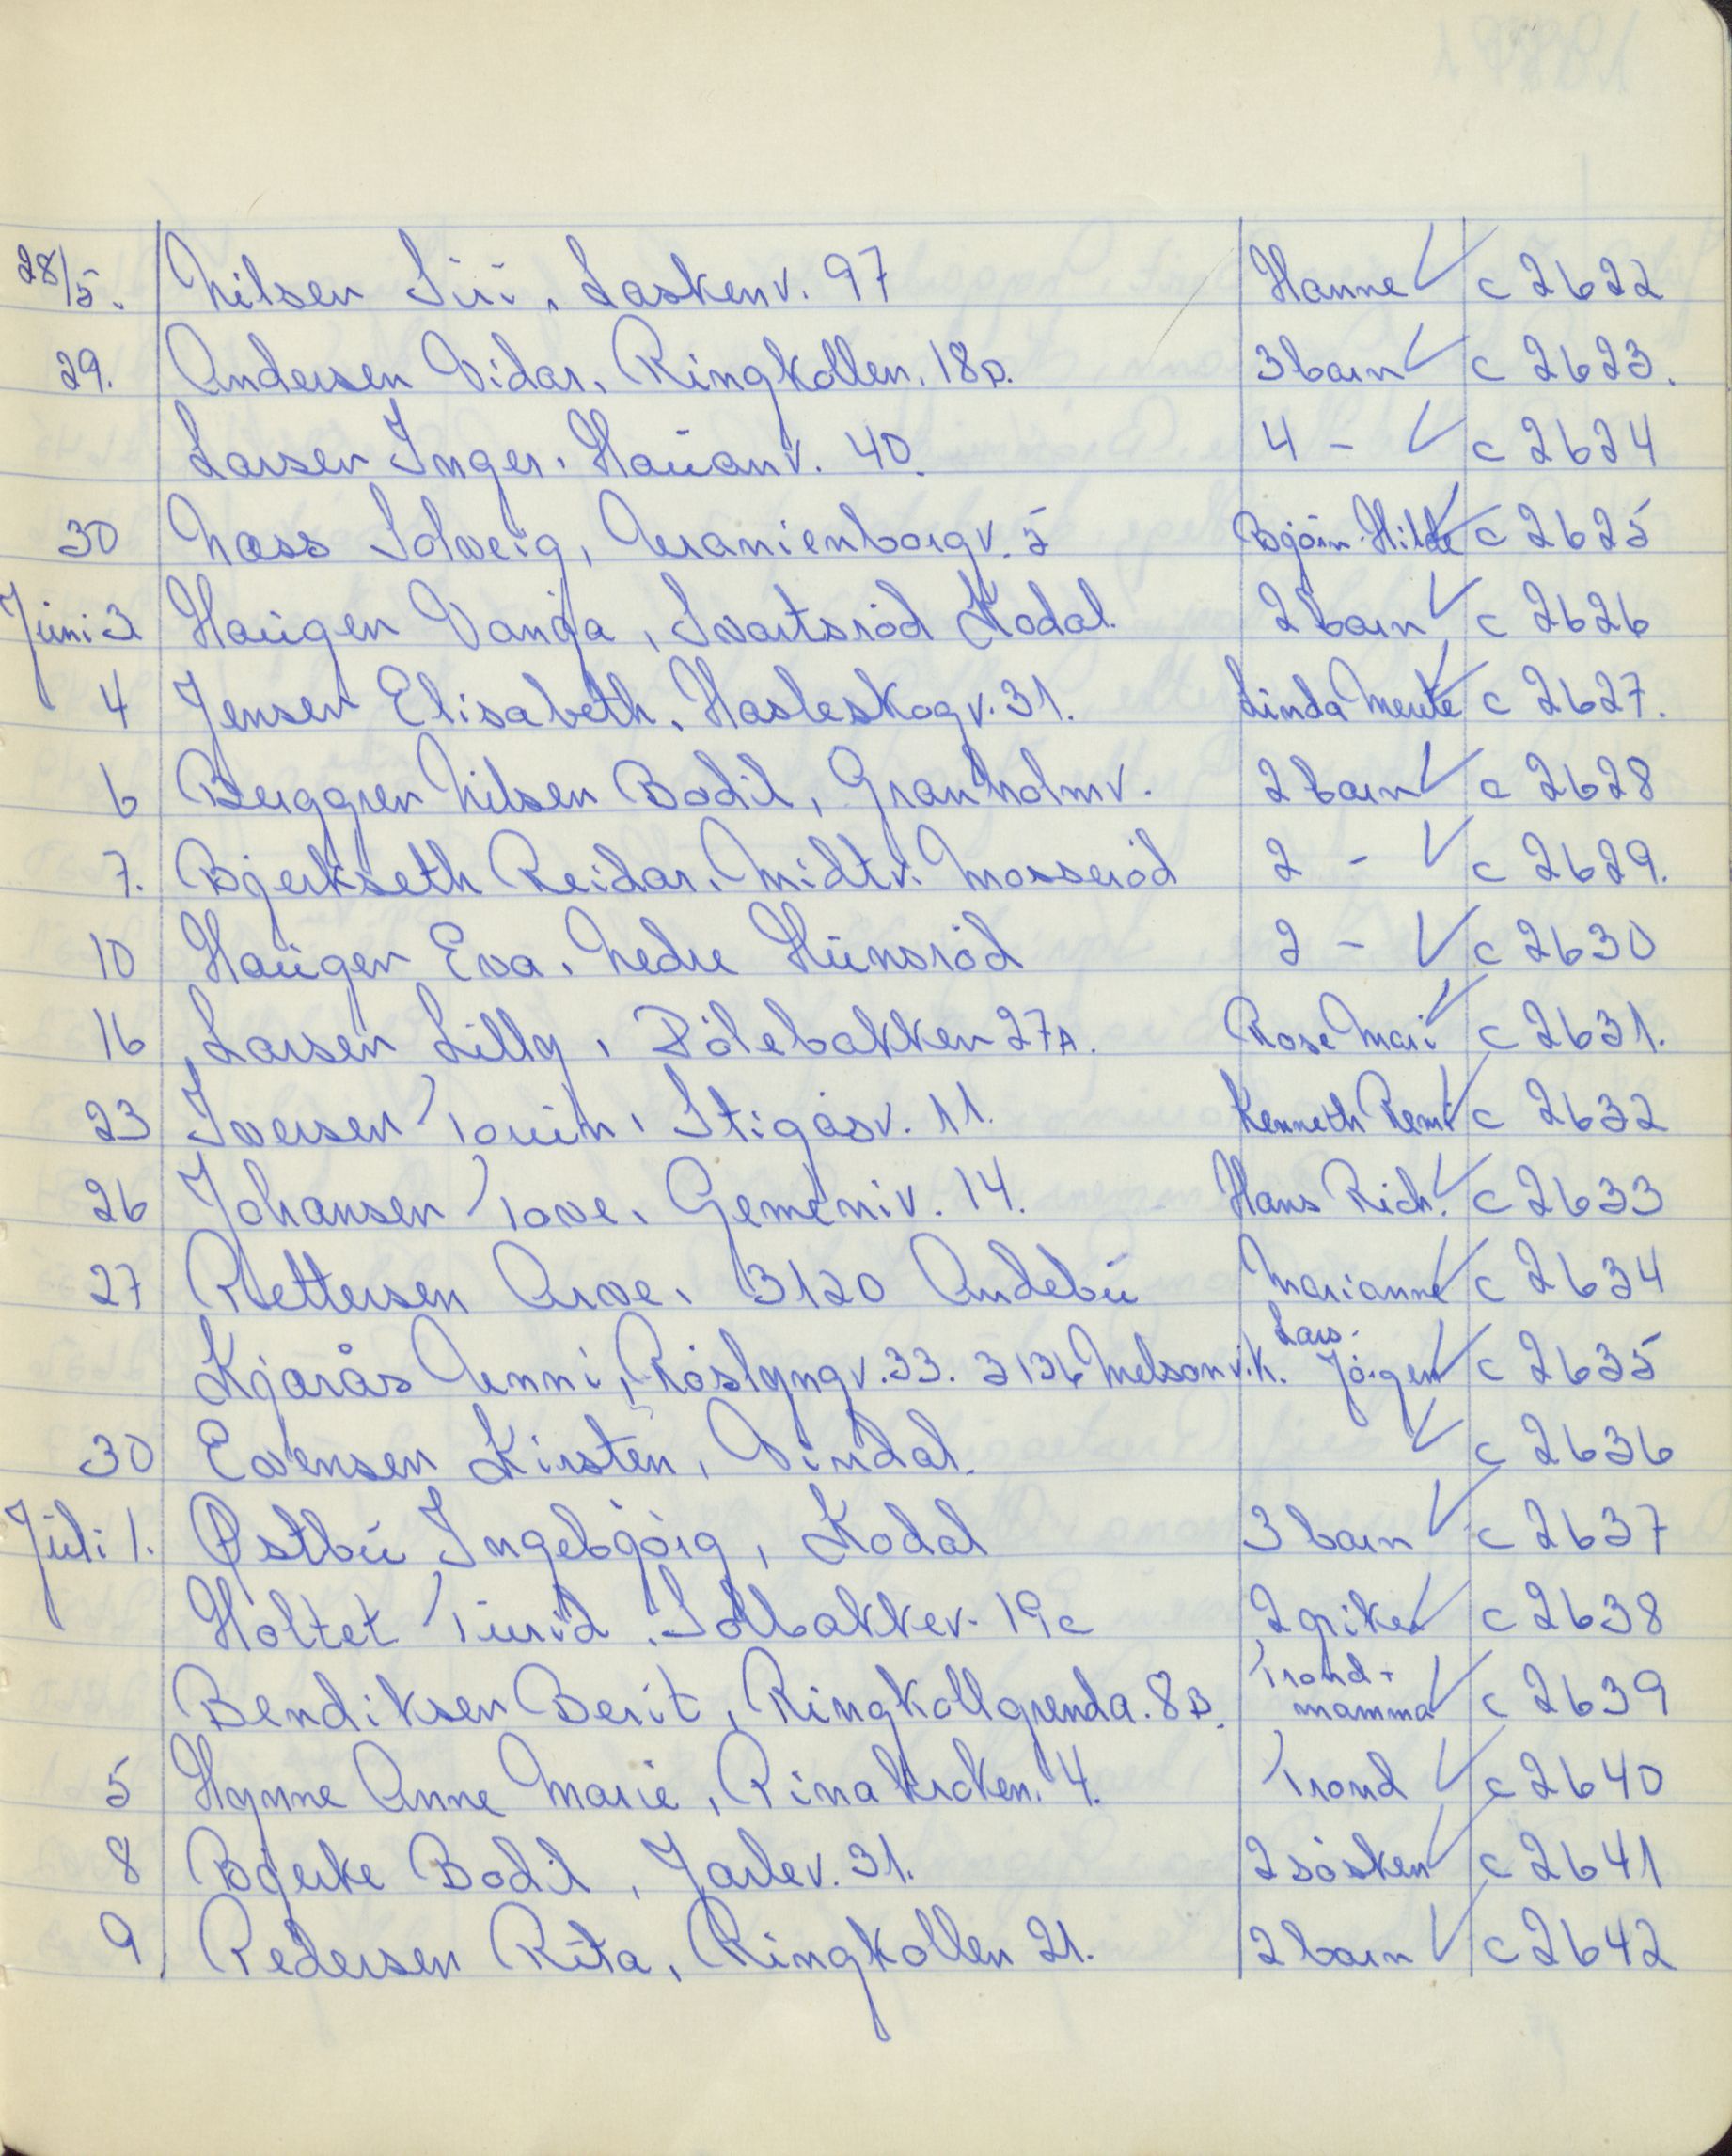 28/5. Nilsen Siri, Laskenv. 97 Hanne ✓ c 2622
29. Andersen Vidar, Ringkollen. 18D. 3 barn ✓ c 2623.
Larsen Inger. Hauanv. 40. 4 - ✓ c 2624
30 Næss Solveig, Uranienborgv. 5 Bjørn-Hilde ✓ c 2625
Juni 3 Haugen Vanja, Svartsrød Kodal. 2 barn ✓ c 2626
4 Jensen Elisabeth, Hasleskogv. 31. Linda Merete ✓ c 2627.
6 Berggren Nilsen Bodil, Granholmv. 2 barn ✓ c 2628
7. Bjerkseth Reidar, Midtv. Mosserød 2 - ✓ c 2629.
10 Haugen Eva, Nedre Hunsrød 2 - ✓ c 2630
16 Larsen Lilly, Pølebakken 27A. Rose Mari ✓ c 2631.
23 Iversen Torun, Stigåsv. 11. Kenneth Remi ✓ c 2632
26 Johansen Tove, Geminiv. 14. Hans Rich. ✓ c 2633
27 Pettersen Arve, 3120 Andebu Marianne ✓ c 2634
Kjærås Unni, Røslyngv. 33. 3136 Melsomvik. Lars-Jørgen ✓ c 2635
30 Evensen Kirsten, Vindal. ✓ c 2636
Juli 1. Østbu Ingebjørg, Kodal 3 barn ✓ c 2637
Holtet Turid, Solbakkev. 19c 2 piker ✓ c 2638
Bendiksen Berit, Ringkollgrenda. 8B. Trond + mamma ✓ c 2639
5 Hynne Anne Marie, 4. Trond ✓ c 2640
8 Bjerke Bodil, Jarlev. 31. 2 søsken ✓ c 2641
9. Pedersen Rita, Ringkollen 21. 2 barn ✓ c 2642